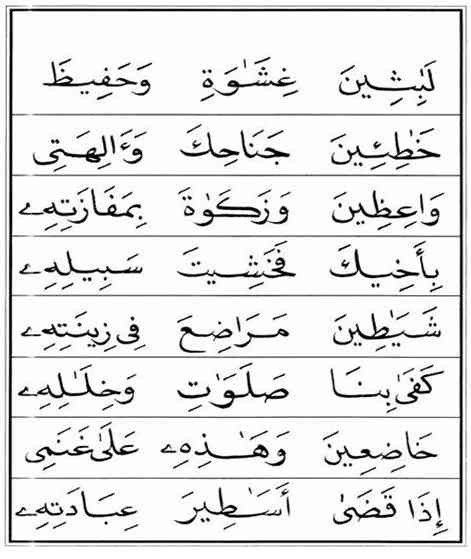 لَٰبِثِينَ غِشَٰوَةِ وَحَفِيظَ
خَٰطِئِينَ جَنَاحِكَ وَءَالِهَتِى
وَاعِظِينَ وَزَكَوٰةَ بِمَفَازَتِهِۦ
بِأَخِيكَ فَخَشِيتَ سَبِيلِهِۦ
شَيَٰطِينَ مَرَاضِعَ فِى زِينَتِهِۦ
كَفَىٰ بِنَا صَلَوَٰتِ وَخِلَٰلِهِۦ
خَاضِعِينَ وَهَٰذِهِۦ عَلَىٰ غَنَمِى
إِذَا قَضَىٰ أَسَٰطِيرَ عِبَادَتِهِۦ